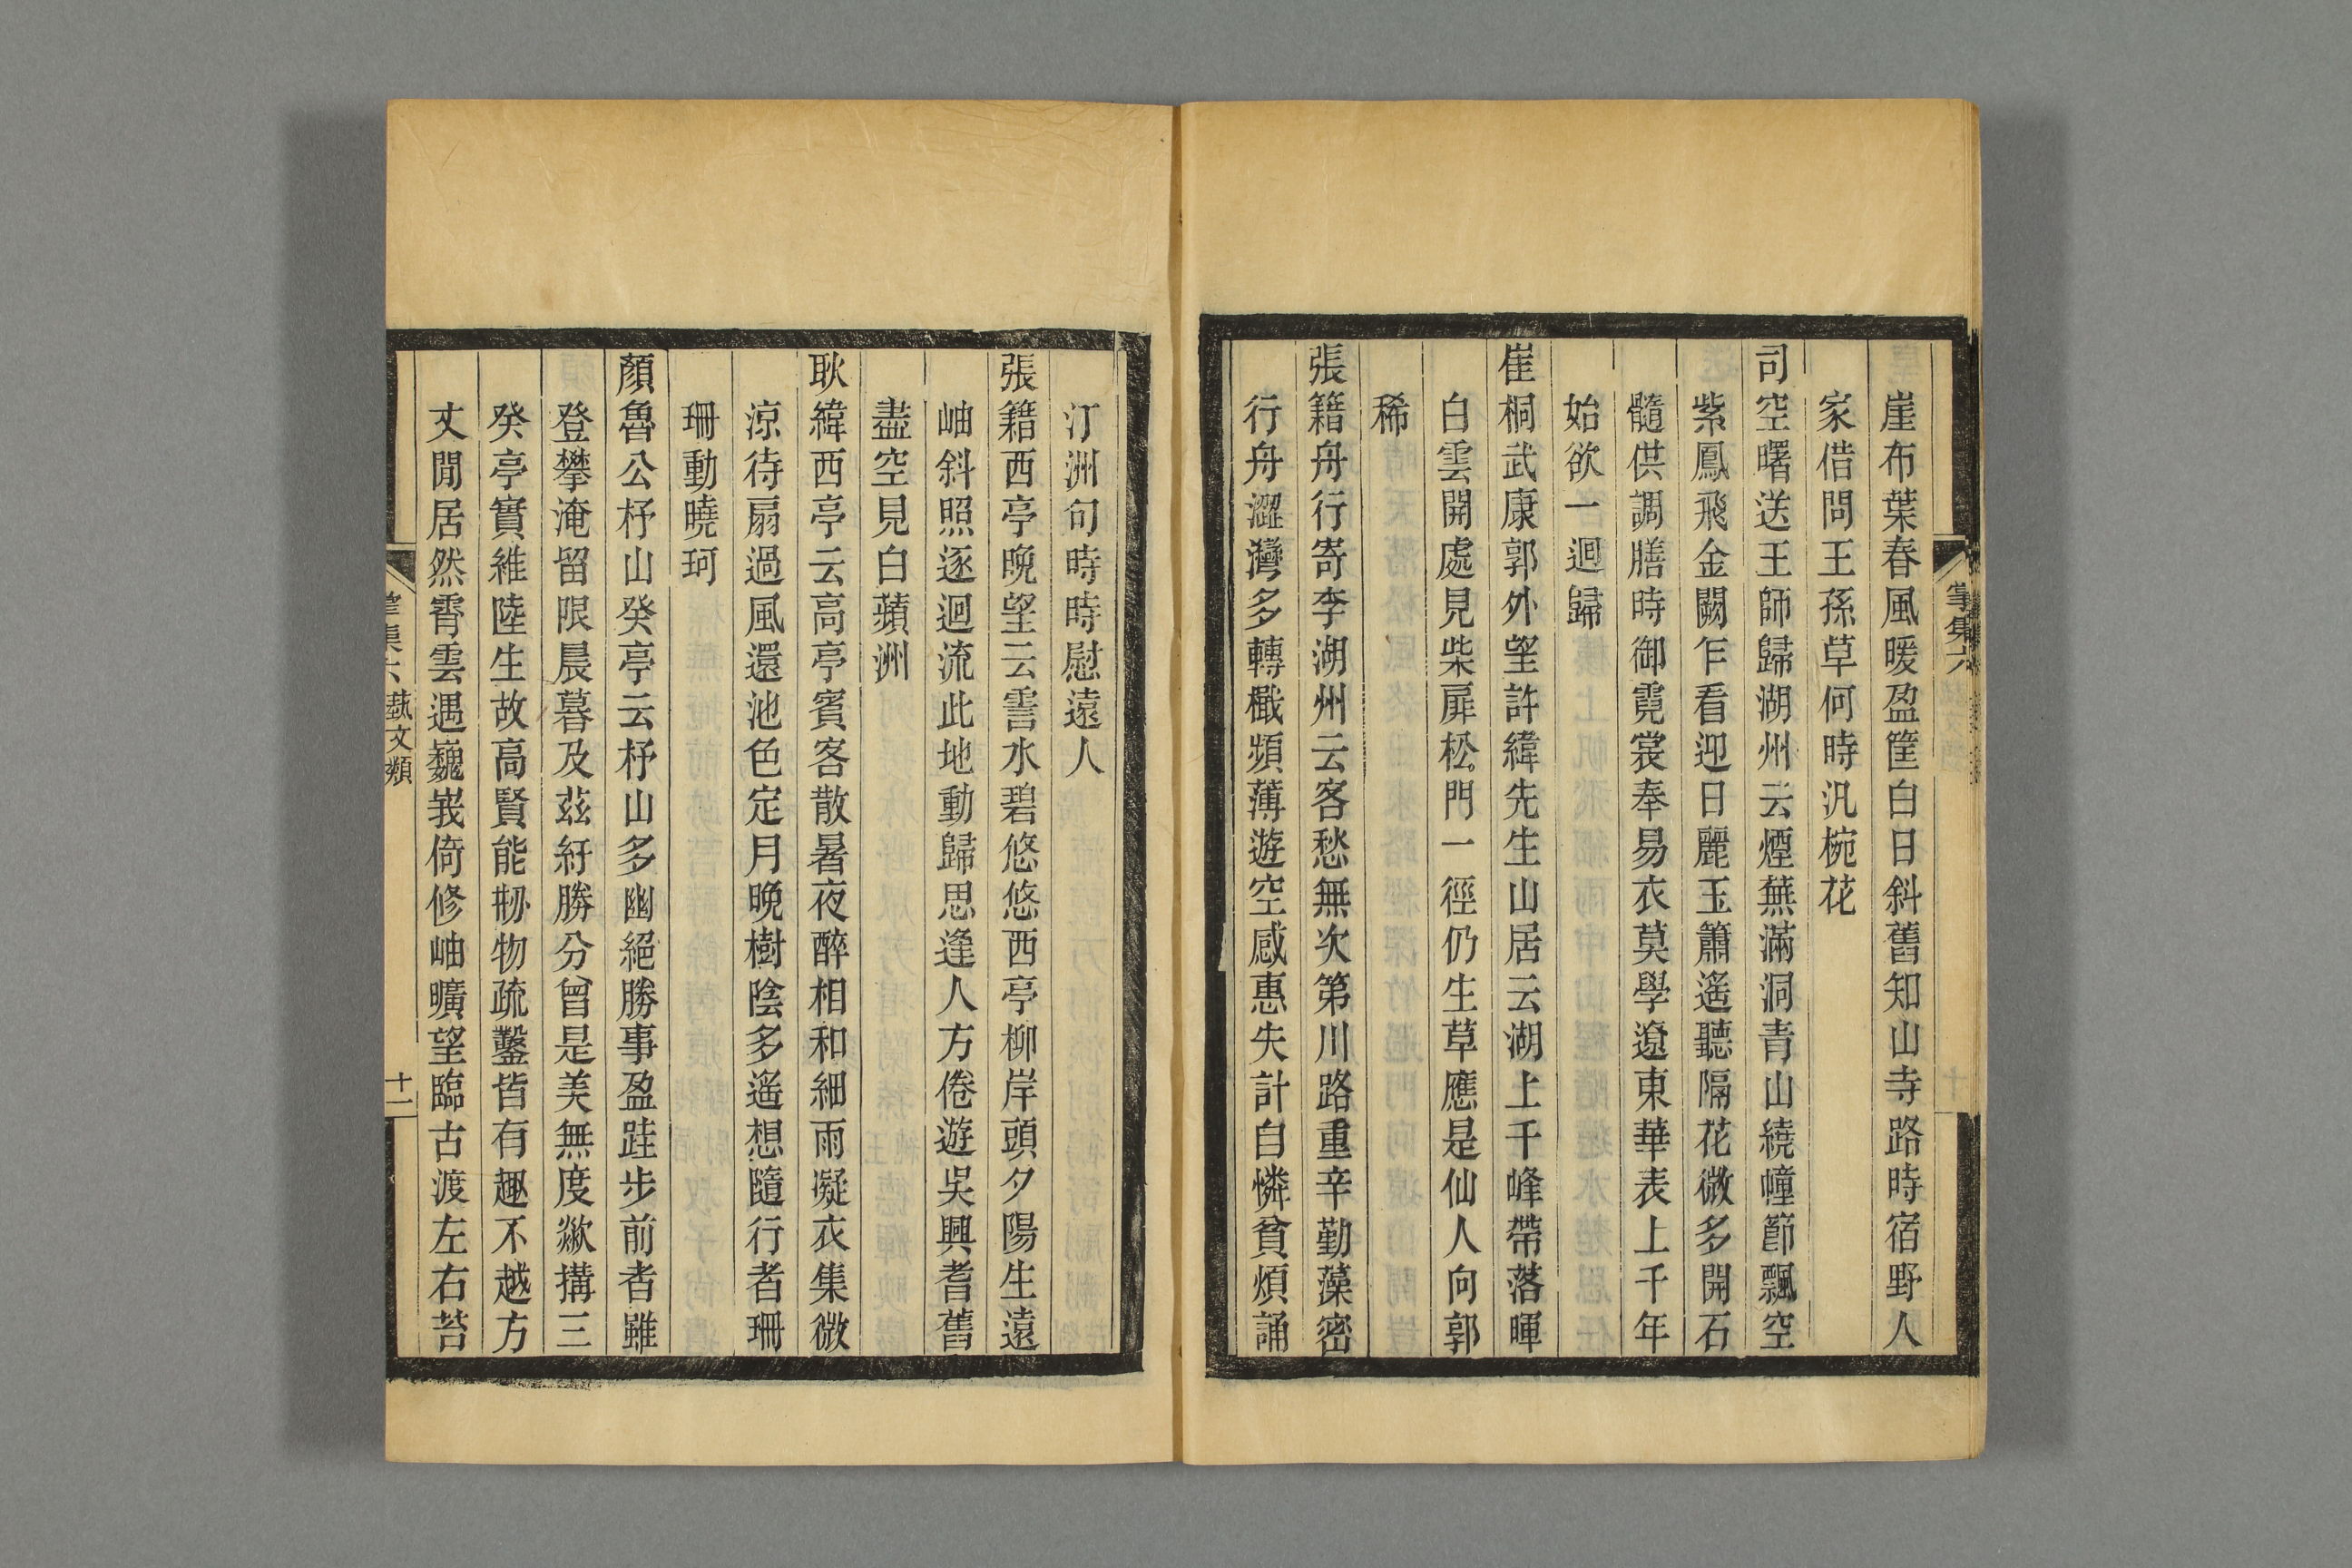 崖布葉春風暖盈筐白日斜舊知山寺路時宿野人
家借問王孫草何時汎椀花
司空曙送王師歸湖州云煙蕪滿洞青山繞幢節飄空
紫鳳飛金闕乍看迎日麗玉簫遙聽隔花微多開石
髓供調膳時御霓裳奉易衣莫學遼東華表上千年
始欲一迴歸
崔桐武康郭外望許緯先生山居云湖上千峰帶落暉
白雲開處見柴扉松門一徑仍生草應是仙人向郭
稀
張籍舟行寄李湖州云客愁無次第川路重辛勤藻密
行舟澀灣多轉檝頻薄遊空感惠失計自憐貧煩誦
汀洲句時時慰遠人
張籍西亭晚望云霅水碧悠悠西亭柳岸頭夕陽生遠
岫斜照逐迴流此地動歸思逢人方倦遊吳興耆舊
盡空見白蘋洲
耿緯西亭云高亭賓客散暑夜醉相和細雨凝衣集微
涼待扇過風還池色定月晚樹陰多遙想隨行者珊
珊動曉珂
顏魯公杼山癸亭云杼山多幽絕勝事盈跬步前者雖
登攀淹留限晨暮及茲紆勝分曾是美無度歘搆三
癸亭實維陸生故高賢能剙物疏鑿皆有趣不越方
丈閒居然霄雲遇巍峩倚修岫曠望臨古渡左右苔
掌集六 藝文類 十一